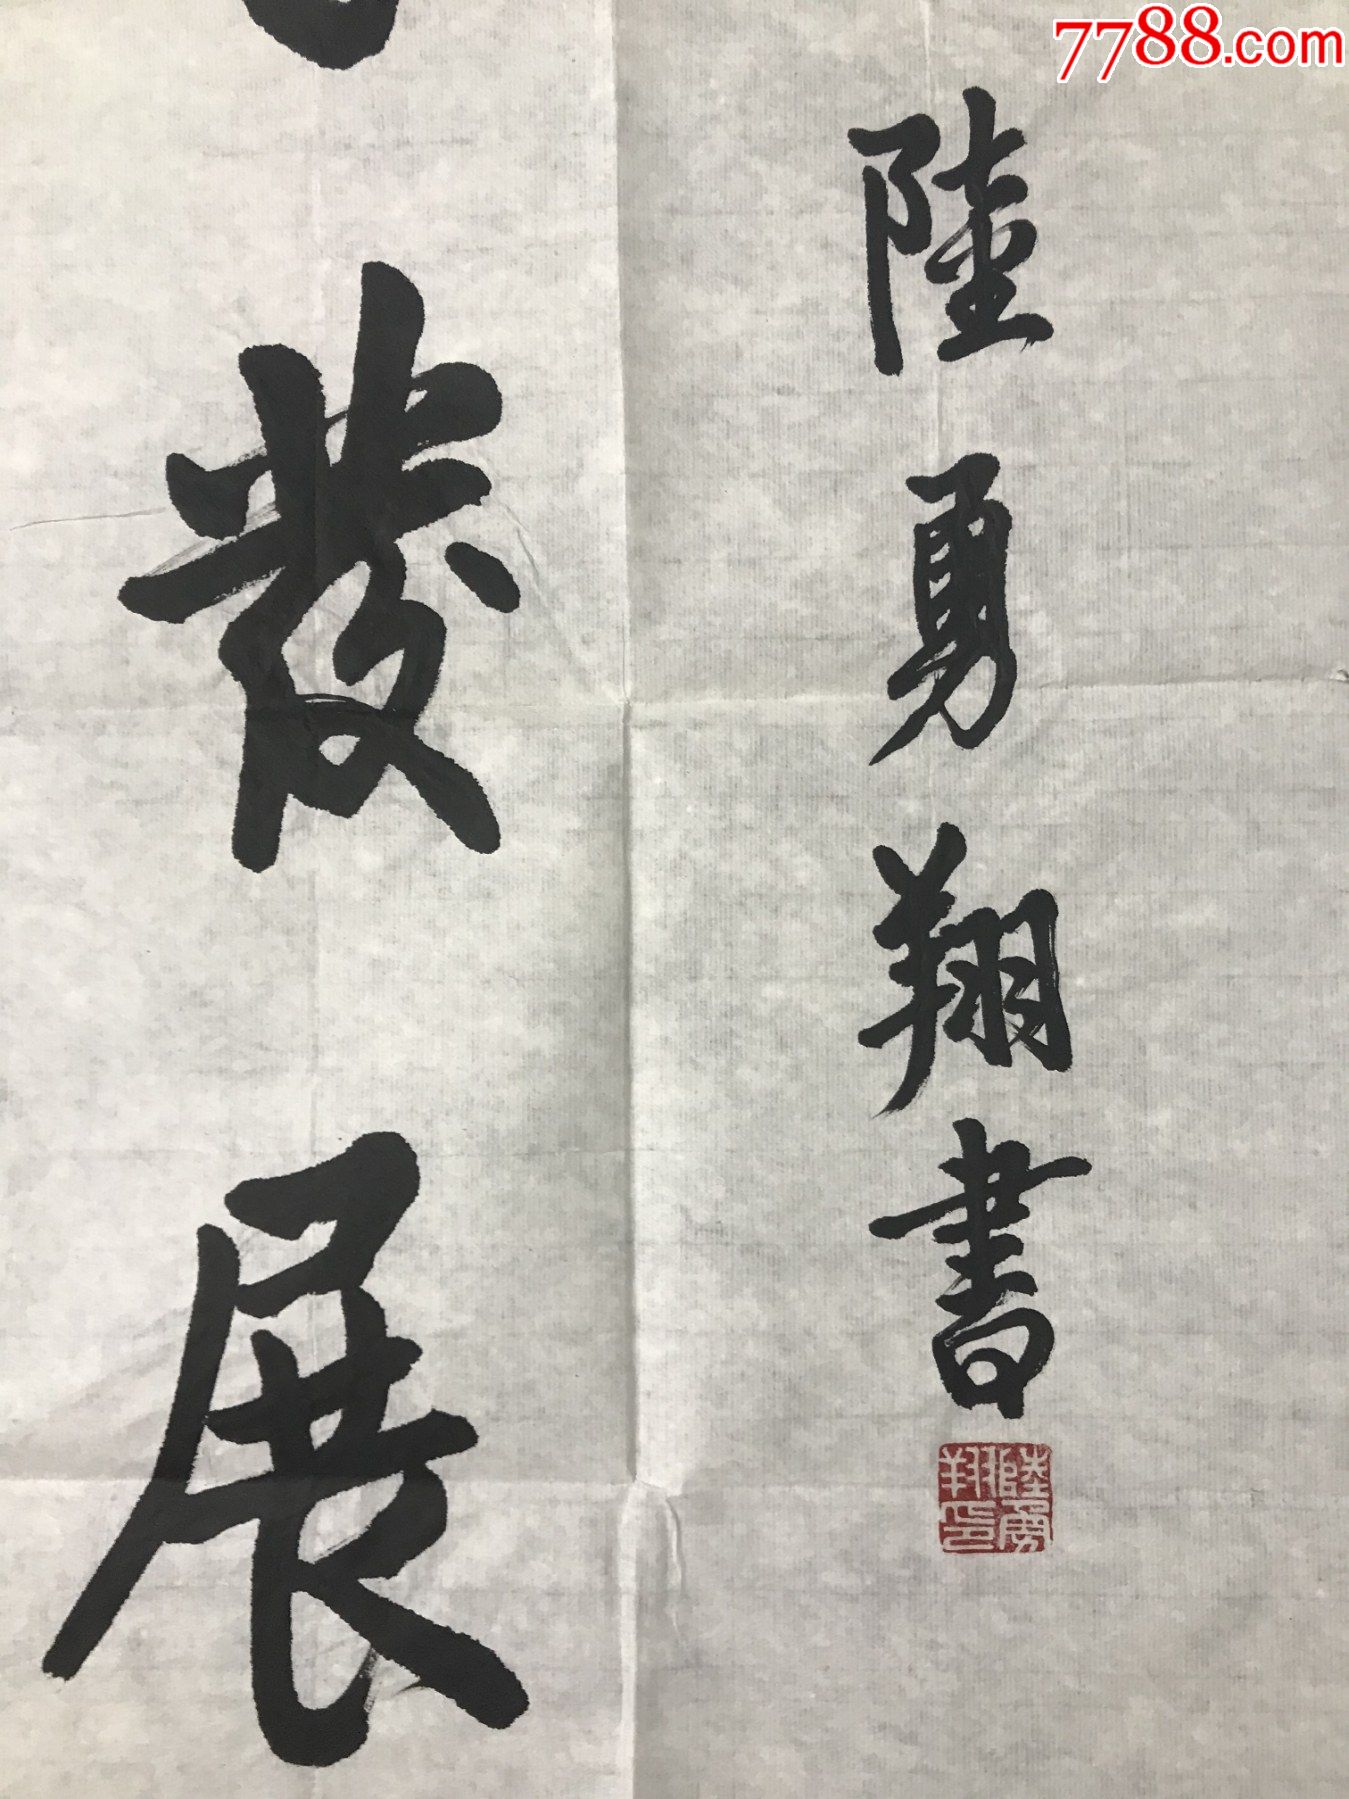 7788.com
發展
陸勇翔書
陸勇翔印